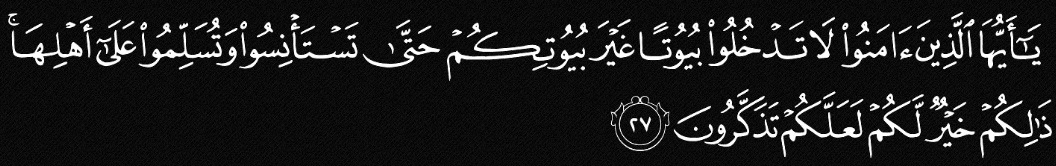 يَـٰٓأَيُّهَا ٱلَّذِينَ ءَامَنُوا۟ لَا تَدْخُلُوا۟ بُيُوتًا غَيْرَ بُيُوتِكُمْ حَتَّىٰ تَسْتَأْنِسُوا۟ وَتُسَلِّمُوا۟ عَلَىٰٓ أَهْلِهَا ۚ
ذَٰلِكُمْ خَيْرٌ لَّكُمْ لَعَلَّكُمْ تَذَكَّرُونَ ٢٧